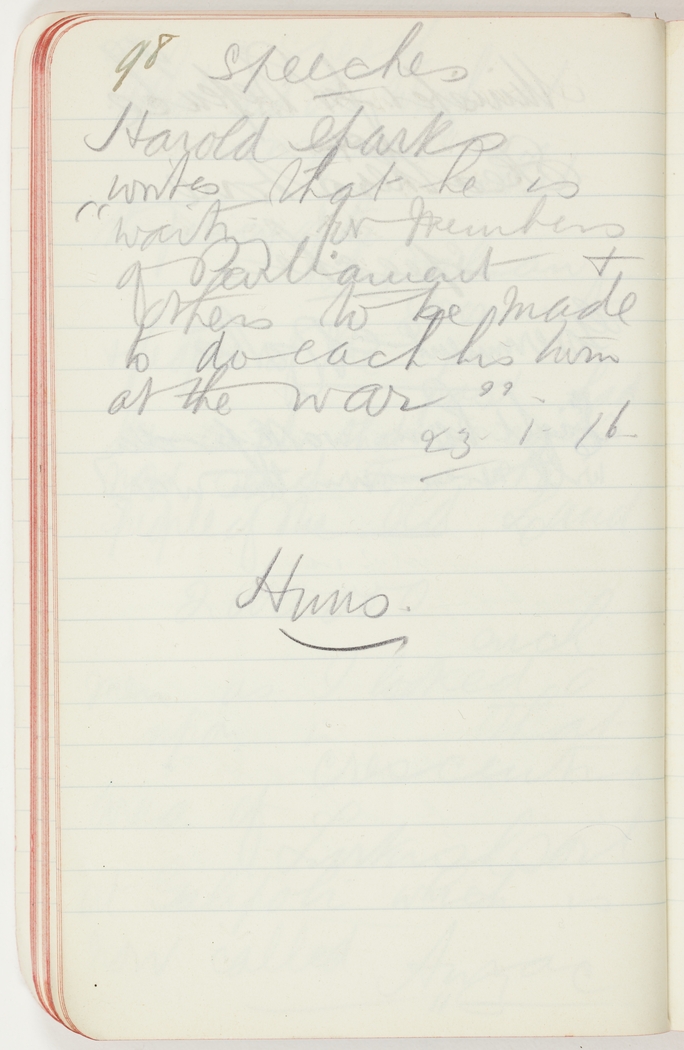 98 Speeches
Harold Sparks
writes that he is
"waitg for Members
of Parliament +
others to be made
to do each his turn
at the war".
23-1-16
Huns.